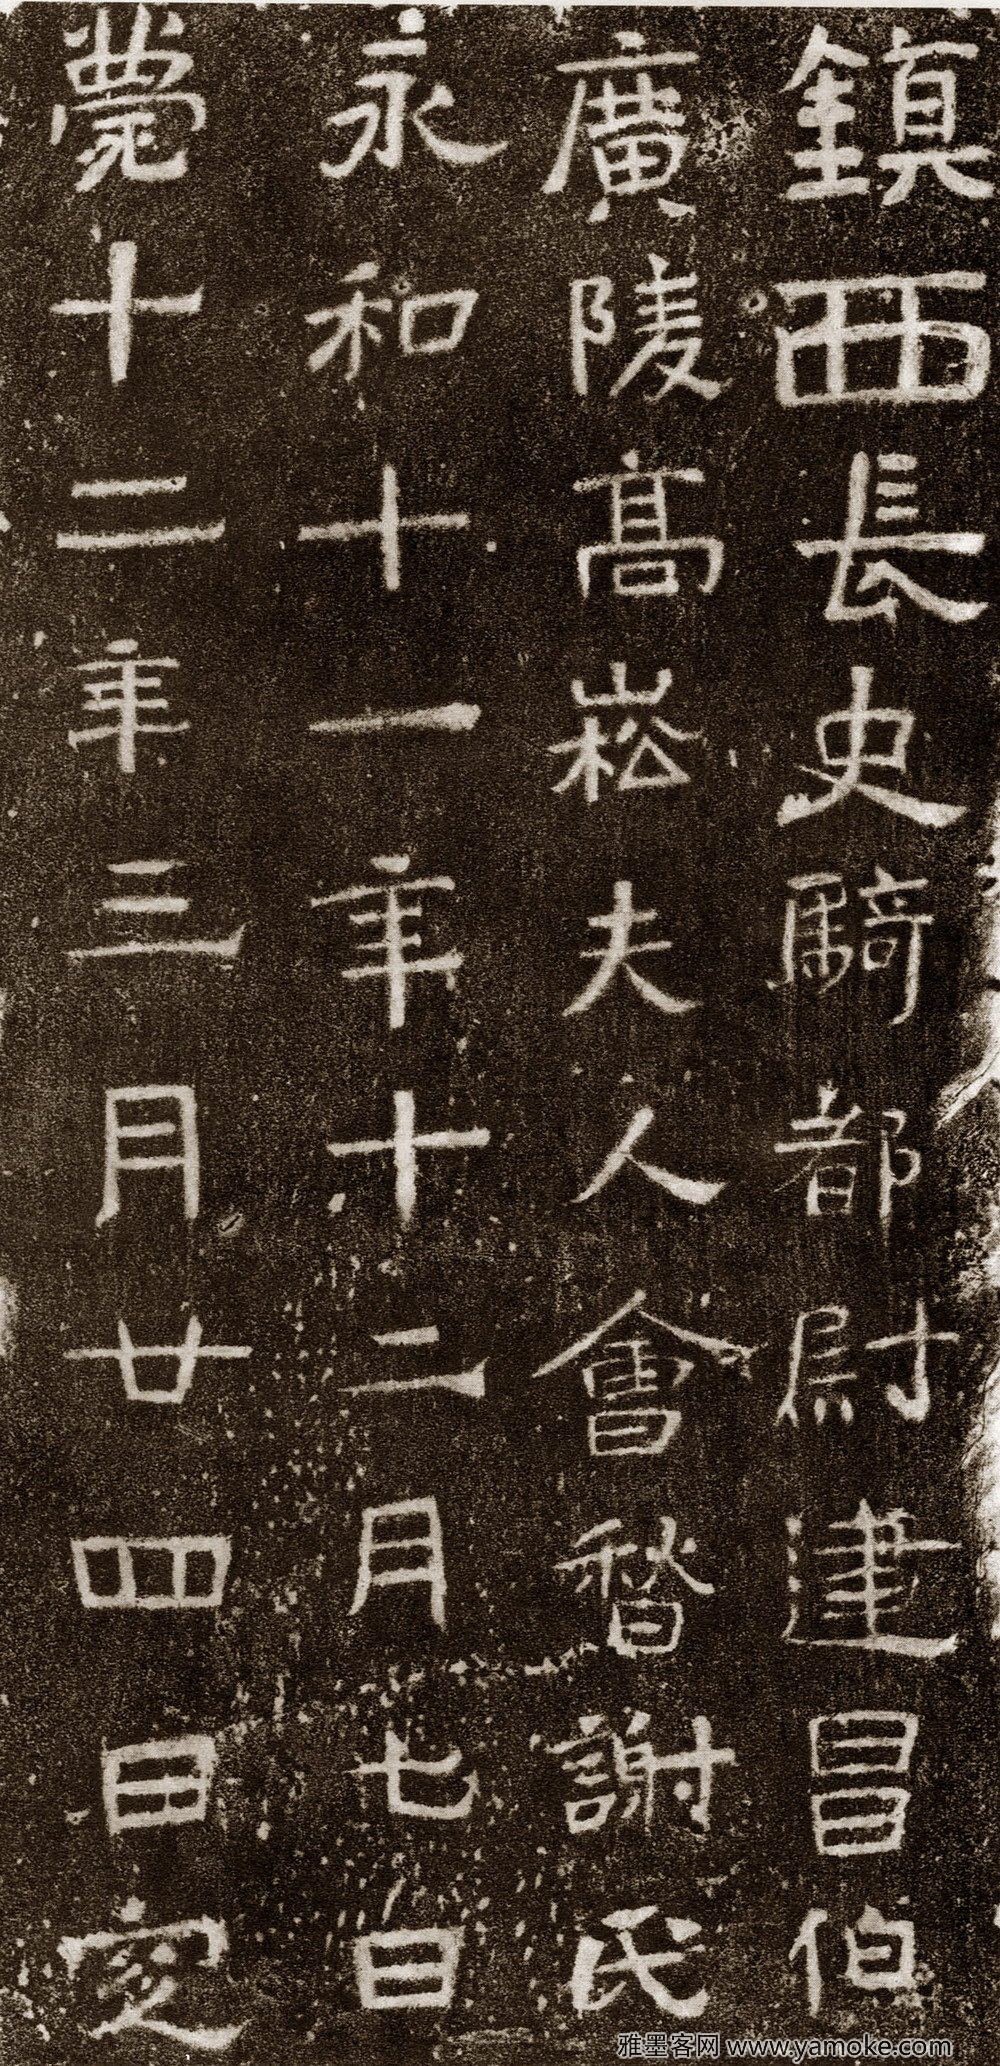 鎮西長史騎都尉建昌伯
廣陵高崧夫人會稽謝氏
永和十一年十二月七日
薨十二年三月廿四日窆
雅墨客网 www.yamoke.com